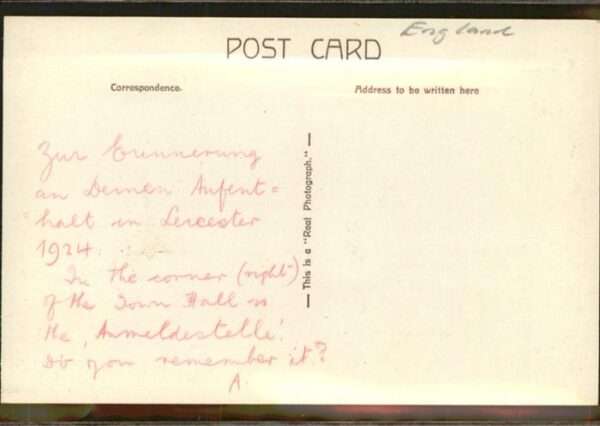 England
POST CARD
Correspondence.
Address to be written here
Zur Erinnerung
an Deinen Aufent=
halt in Leicester
1924.
In the corner (right)
of the Town Hall is
the "Anmeldestelle".
Do you remember it?
A.
This is a "Real Photograph."